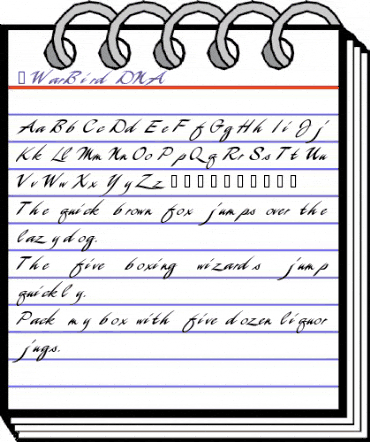 ▯WarBird DNA
Aa Bb Cc Dd Ee Ff Gg Hh Ii Jj
Kk Ll Mm Nn Oo Pp Qq Rr Ss Tt Uu
Vv Ww Xx Yy Zz ▯▯▯▯▯▯▯▯▯▯
The quick brown fox jumps over the
lazydog.
The five boxing wizards jump
quickly.
Pack my box with five dozen liquor
jugs.